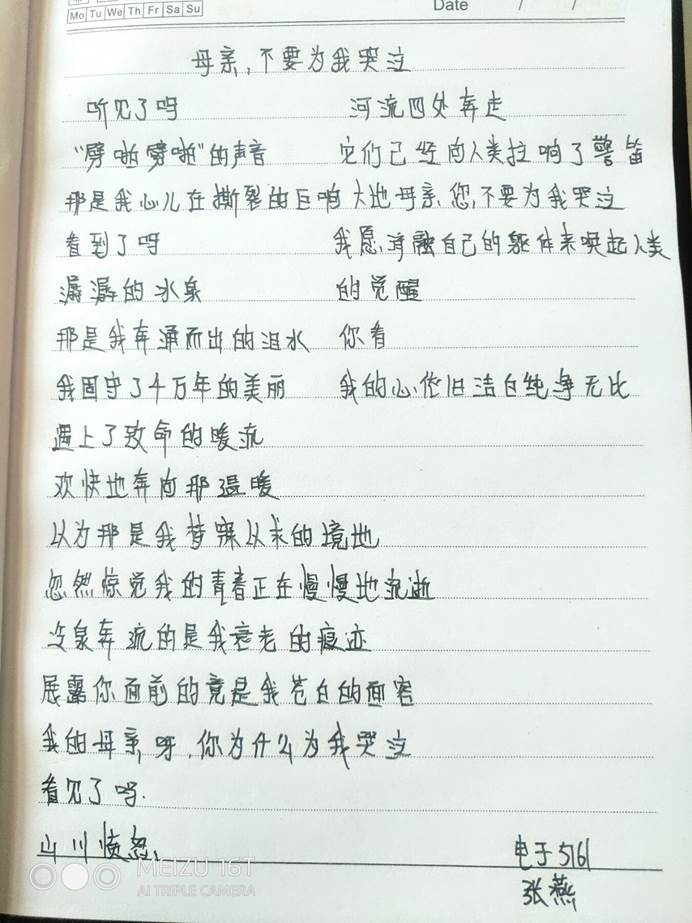 Mo Tu We Th Fr Sa Su
Date / /
母亲,不要为我哭泣
听见了吗
“劈啪劈啪”的声音
那是我心儿在撕裂的巨响
看到了吗
潺潺的冰泉
那是我奔涌而出的泪水
我固守了千万年的美丽
遇上了致命的暖流
欢快地奔向那温暖
以为那是我梦寐以求的境地
忽然惊觉我的青春正在慢慢地流逝
冰泉奔流的是我衰老的痕迹
展露你面前的竟是我苍白的面容
我的母亲呀,你为什么为我哭泣
看见了吗.
山川愤怒,
河流四处奔走
它们已经向人类拉响了警笛
大地母亲,您,不要为我哭泣
我愿,消融自己的躯体来唤起人类
的觉醒
你看
我的心依旧洁白纯净无比
电子5161
张燕
MEIZU 16T
AI TRIPLE CAMERA